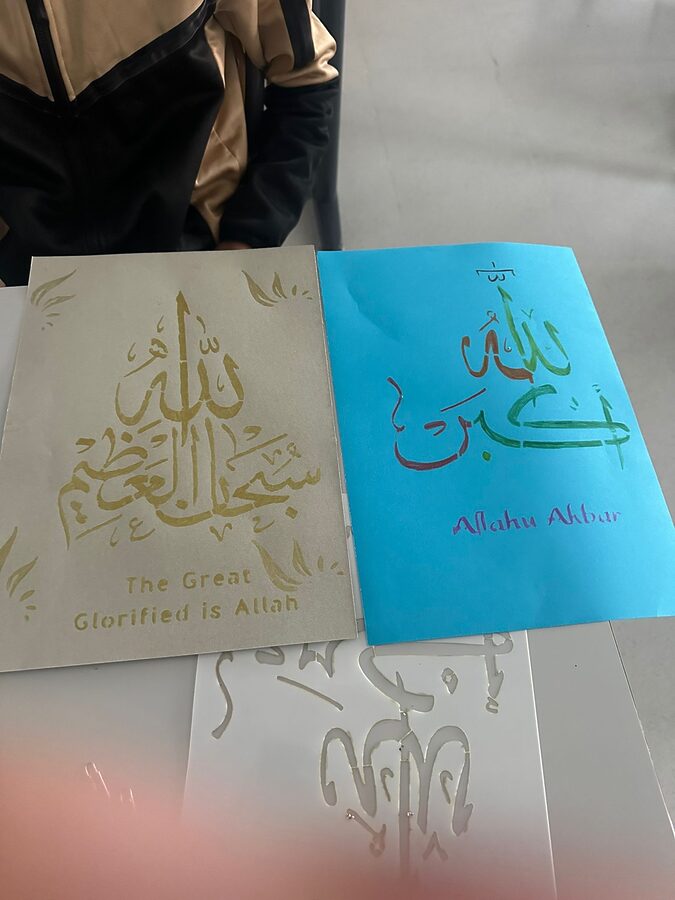 سُبْحَانَ اللّٰهِ الْعَظِيْمِ
The Great
Glorified is Allah
اللّٰهُ
أَكْبَر
Allahu Akbar